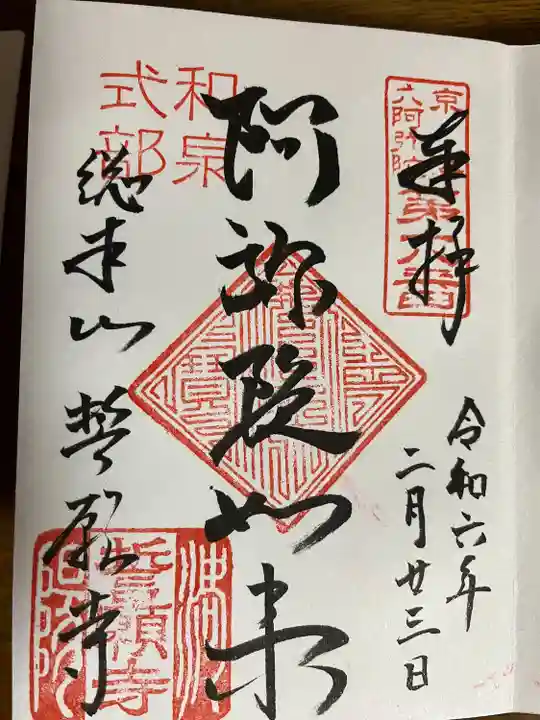 奉拝
京
六阿弥陀
第六番
令和六年
二月廿三日
阿弥陀如来
和泉
式部
総本山 誓願寺
誓願寺